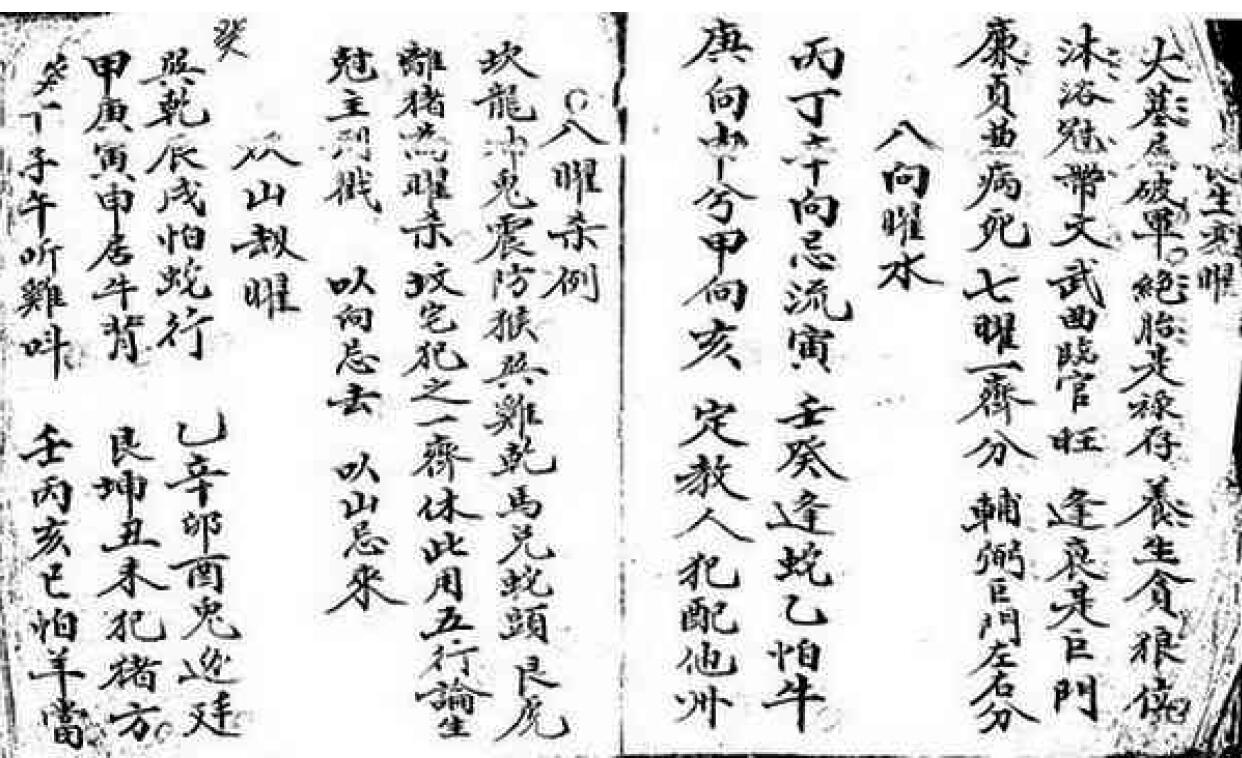 長生美曜
大墓居破軍絕胎是祿存 養生貪狼位
沐浴冠帶文 武曲臨官旺 逢衰是巨門
廉貞並病死 七曜一齊分 輔弼巨門左右分
八向曜水
丙丁辛向忌流寅 壬癸逢蛇乙怕牛
庚向甲兮甲向亥 定教人犯配他州
○八曜杀例
坎龍坤兎震防猴巽雞乾馬兑蛇頭艮虎
離猪為曜杀坟宅犯之一齊休此用五行論生
尅主刑戮 以向忌去 以山忌來
山刼曜
癸
巽乾辰戌怕蛇行 乙辛卯酉兎迯廷
甲庚寅申居牛背 艮坤丑未犯猪方
癸丁子午听雞呌 壬丙亥巳怕羊當